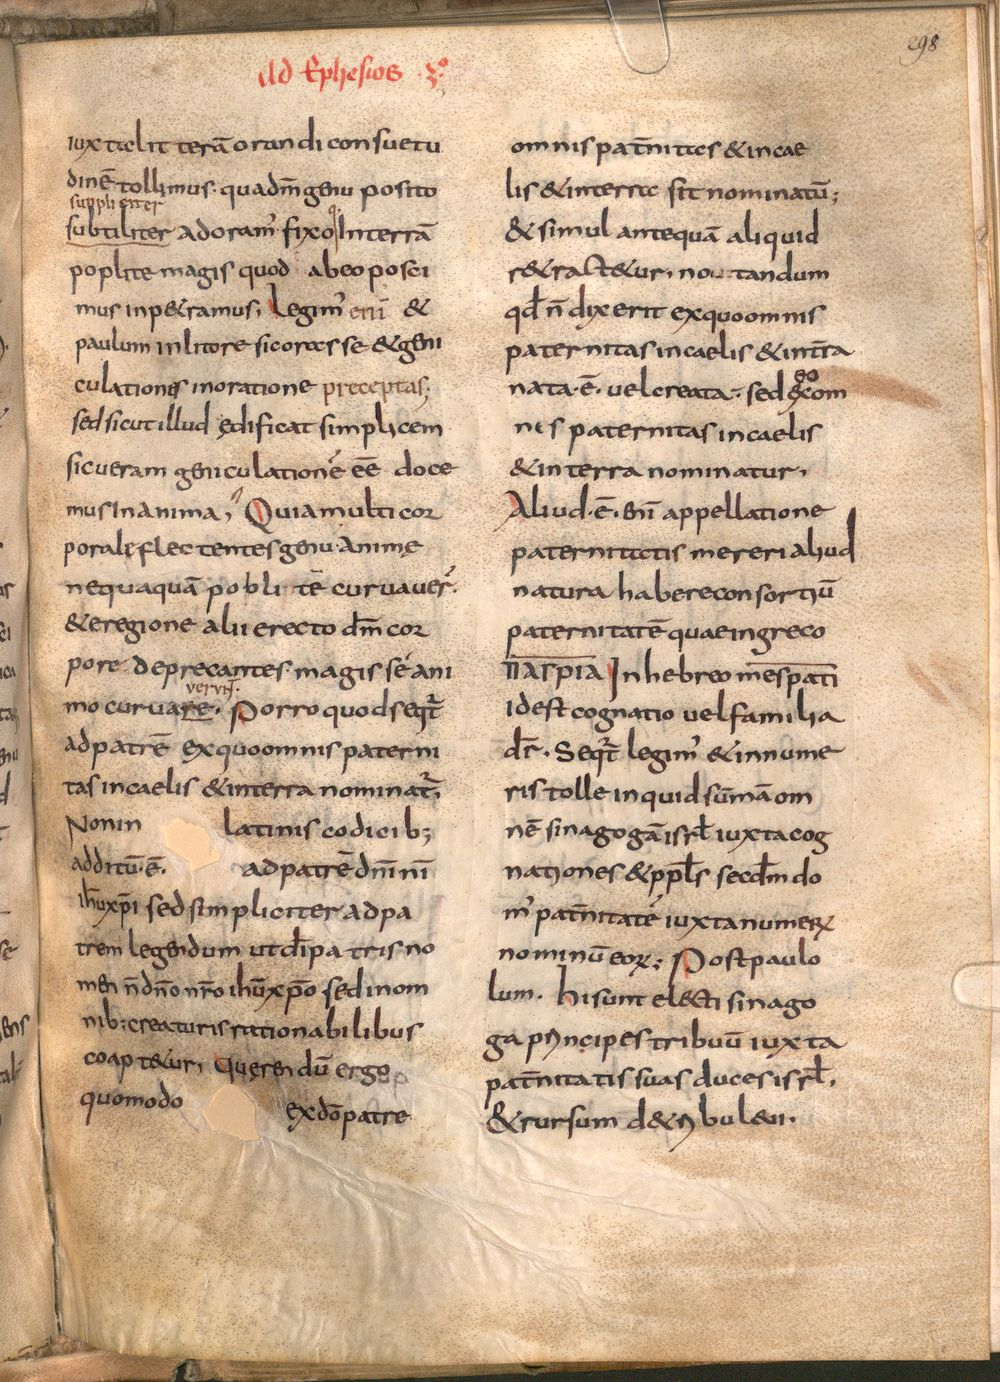 298
Ad Ephesios ·3·°
iuxta litterā orandi consuetu
dinē tollimus· quadm̄ genu posito
suppliciter
subtiliter adoram᾿ fixo q; In terrā
poplite magis quod abeo posci
mus inp&ramus, Legim᾿ eni &
paulum in litore sic orasse & geni
culationes in oratione preceptas;
sed sicut illud ędificat simplicem
sic ueram geniculationē eē doce
mus In anima, Quia multi cor
poralę flectentes genu animę
nequaquā poblitē curvaver᾿·
& e regione alii erecto dm̄ cor
pore deprecantes magis se ani
vervnt·
mo curvare· Porro quod seqt᾿
ad patrē ex quo omnis paterni
tas in caelis & in terra nominat᾿,
Non in latinis codicib;
additū·ē· ad patrē dn̄i nī
ihūxp̄i sed simpliciter ad pa
trem legendum ut dī patris no
men n̄ dn̄o nr̄o ihū xp̄o sed in om
nib; creaturis rationabilibus
coapt&ur, Querendū ergo
quomodo ex dō patre
omnis pat̄nitas & in cae
lis & in terra sit nominatū;
& simul antequā aliquid
r&ract&ur, notandum
qd̄ n̄ dixerit ex quo omnis
paternitas in caelis & int̄ra
nata·ē· vel creata· sed ex
quo om
nis paternitas in caelis
& in terra nominatur,
Aliud·ē· enī appellatione
paternitatis mereri aliud
natura habere consortiū
paternitatē quae in greco
ΠΑΤΡΙΑ In hebreo mespati
Id est cognatio vel familia
dr̄· Seqt᾿ legim᾿ & in nume
ris tolle inquid sūmā om
nē sinagogā isrl̄ iuxta cog
nationes & ppl̄s secdm̄ do
m᾿ pat̄nitatē iuxta numerꝝ
nominū eoꝝ; Post paulo
lum· hi sunt el&ti sinago
ga principes tribuū iuxta
pat̄nitatis suas duces isrl̄,
& rursum d&ribuleui·